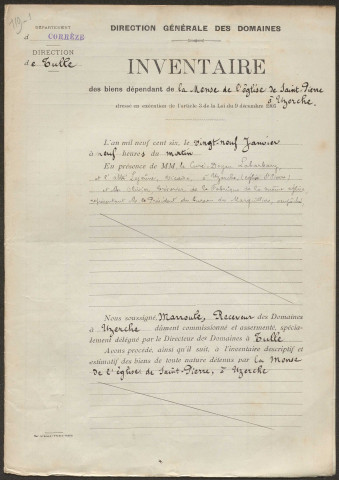 DÉPARTEMENT
d CORRÈZE
DIRECTION
de Tulle
DIRECTION GÉNÉRALE DES DOMAINES
INVENTAIRE
des biens dépendant de la Mense de l'église de Saint-Pierre
à Uzerche,
dressé en exécution de l'article 3 de la Loi du 9 décembre 1905
L'an mil neuf cent six, le vingt-neuf Janvier
à neuf heures du matin
En présence de MM. le Curé-Doyen
et l'abbé vicaire, à Uzerche,
et M. Trésorier de la Fabrique de la même église
représentant M. le Président du Bureau des Marguilliers, empêché
Nous soussigné, Marroule, Receveur des Domaines
à Uzerche dûment commissionné et assermenté, spécia-
lement délégué par le Directeur des Domaines à Tulle
Avons procédé, ainsi qu'il suit, à l'inventaire descriptif et
estimatif des biens de toute nature détenus par la Mense
de l'église de Saint-Pierre, à Uzerche